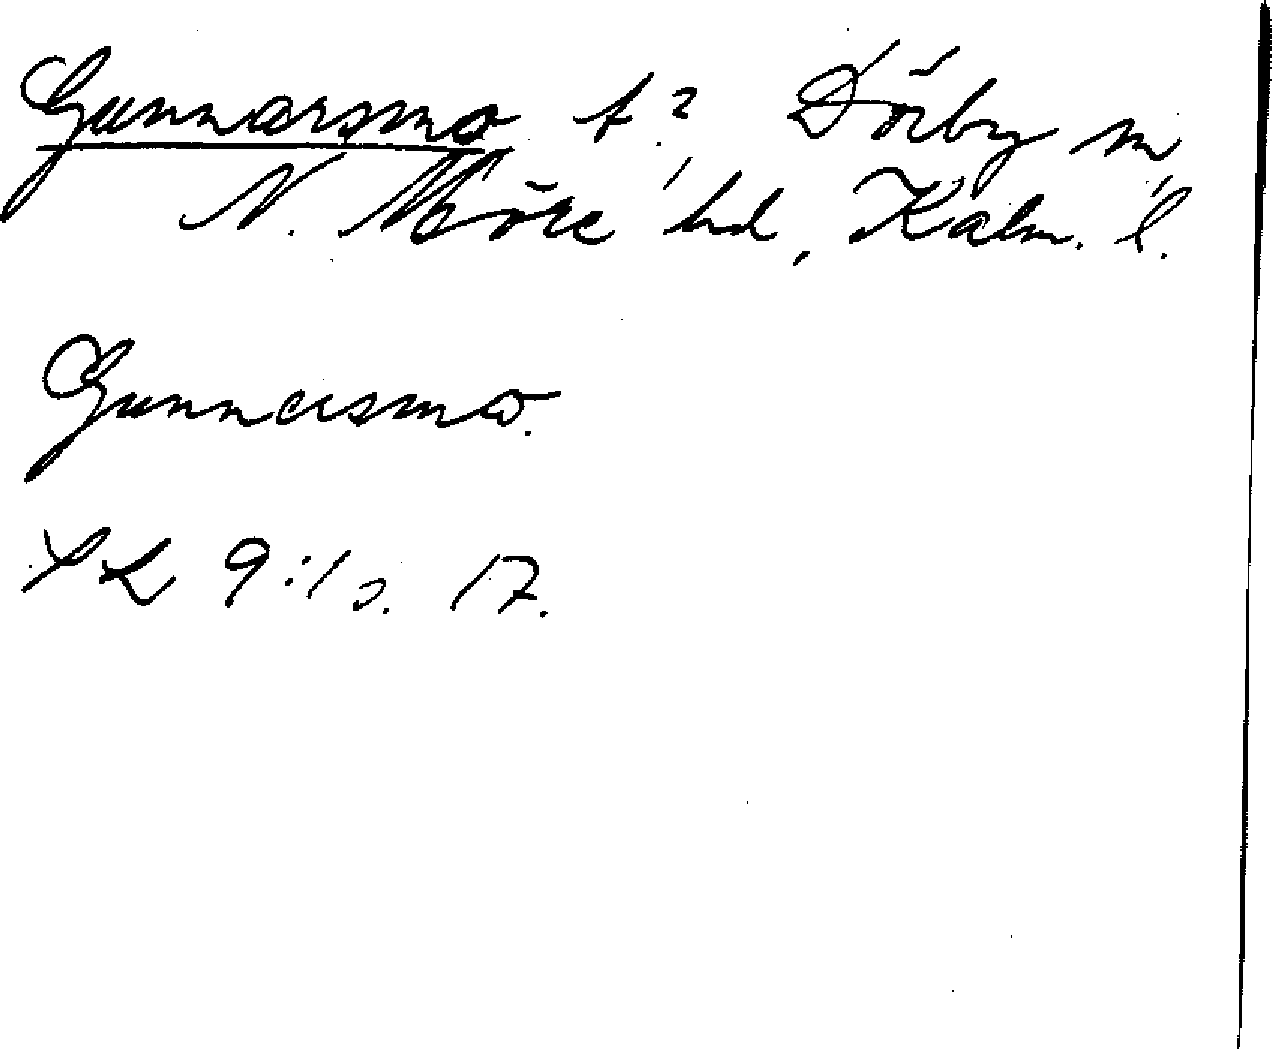 Gunnarsmo t.? Dörby sn
N. Möre hd, Kalm. l.
Gunnarsmo.
SL 9:1 s. 17.